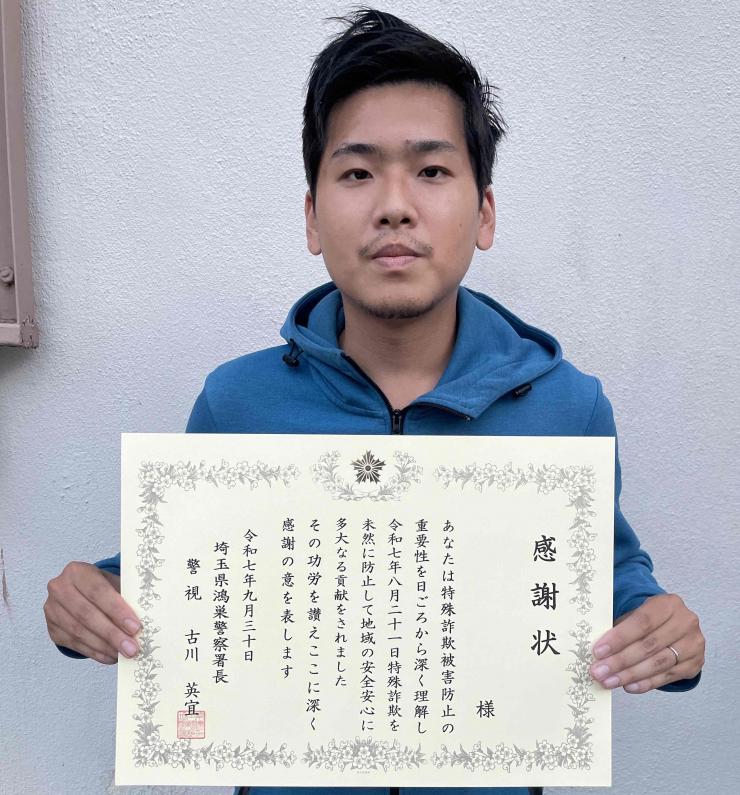 感謝状
様
あなたは特殊詐欺被害防止の
重要性を日ごろから深く理解し
令和七年八月二十一日特殊詐欺を
未然に防止して地域の安全安心に
多大なる貢献をされました
その功労を讃えここに深く
感謝の意を表します
令和七年九月三十日
埼玉県鴻巣警察署長
警視 古川 英宜